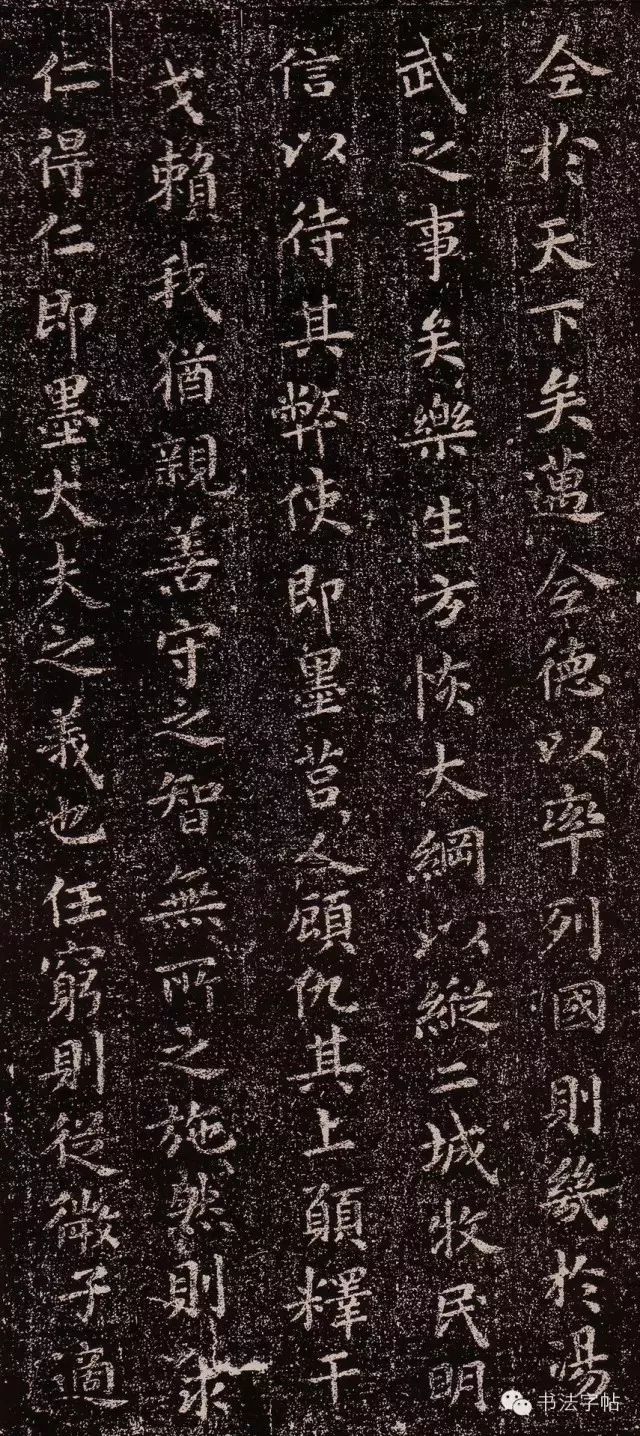 全於天下矣邁全德以率列國則幾於湯
武之事矣樂生方恢大綱以縱二城牧民明
信以待其弊使即墨莒人顧仇其上願釋干
戈賴我猶親善守之智無所之施然則求
仁得仁即墨大夫之義也任窮則從微子適
书法字帖